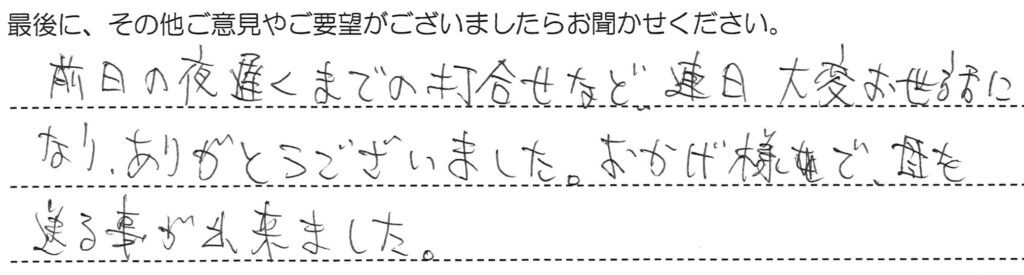 最後に、その他ご意見やご要望がございましたらお聞かせください。
前日の夜遅くまでの打合せなど、連日 大変お世話に
なり、ありがとうございました。おかげ様で、母を
送る事が出来ました。